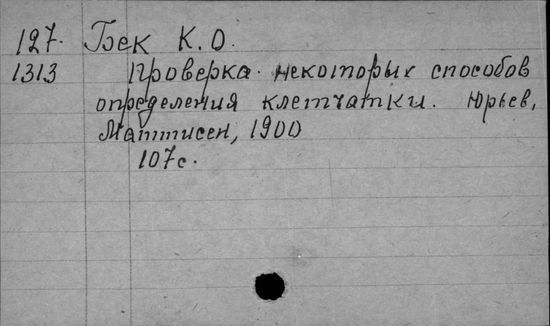 127. Бек К.О.
1313 Проверка некоторых способов
определения клетчатки. Юрьев,
Маттисен, 1900
107с.